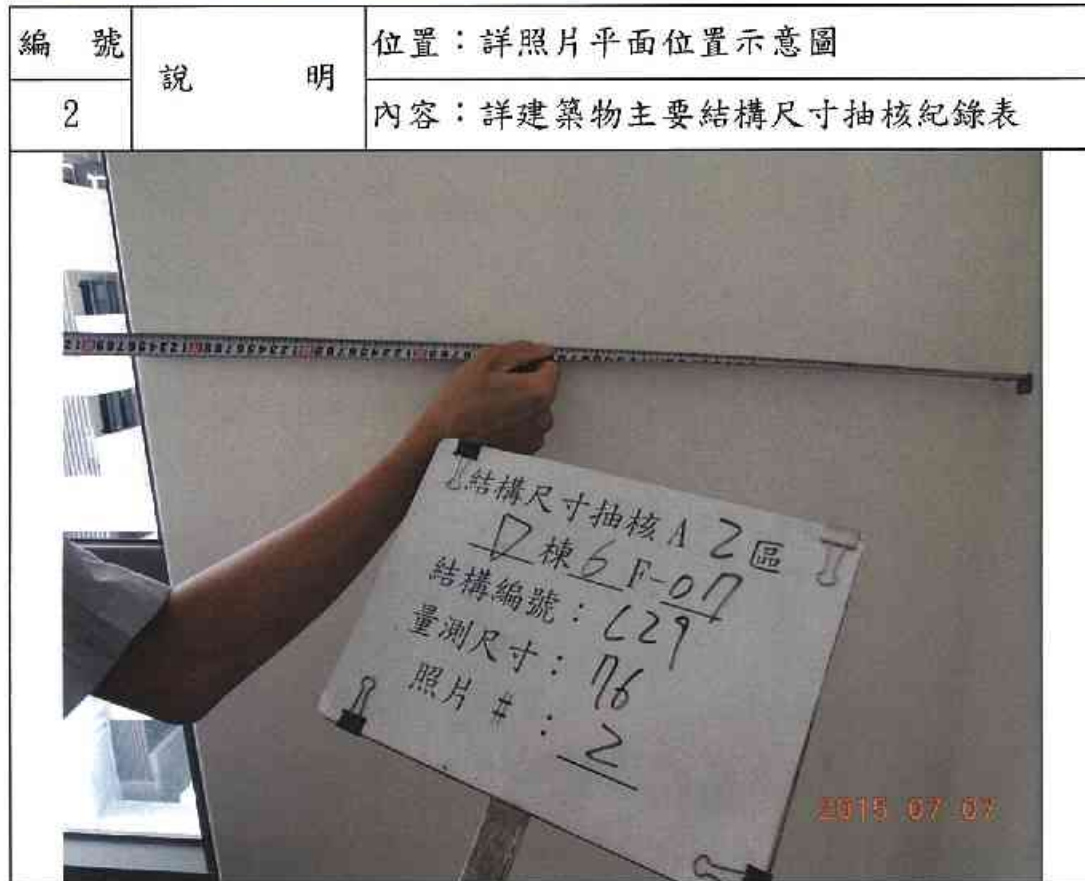 編 號
說 明
位置：詳照片平面位置示意圖
2
內容：詳建築物主要結構尺寸抽核紀錄表
結構尺寸抽核A 2區
D棟6F-07
結構編號：C29
量測尺寸：76
照片 #：2
2015 07 07